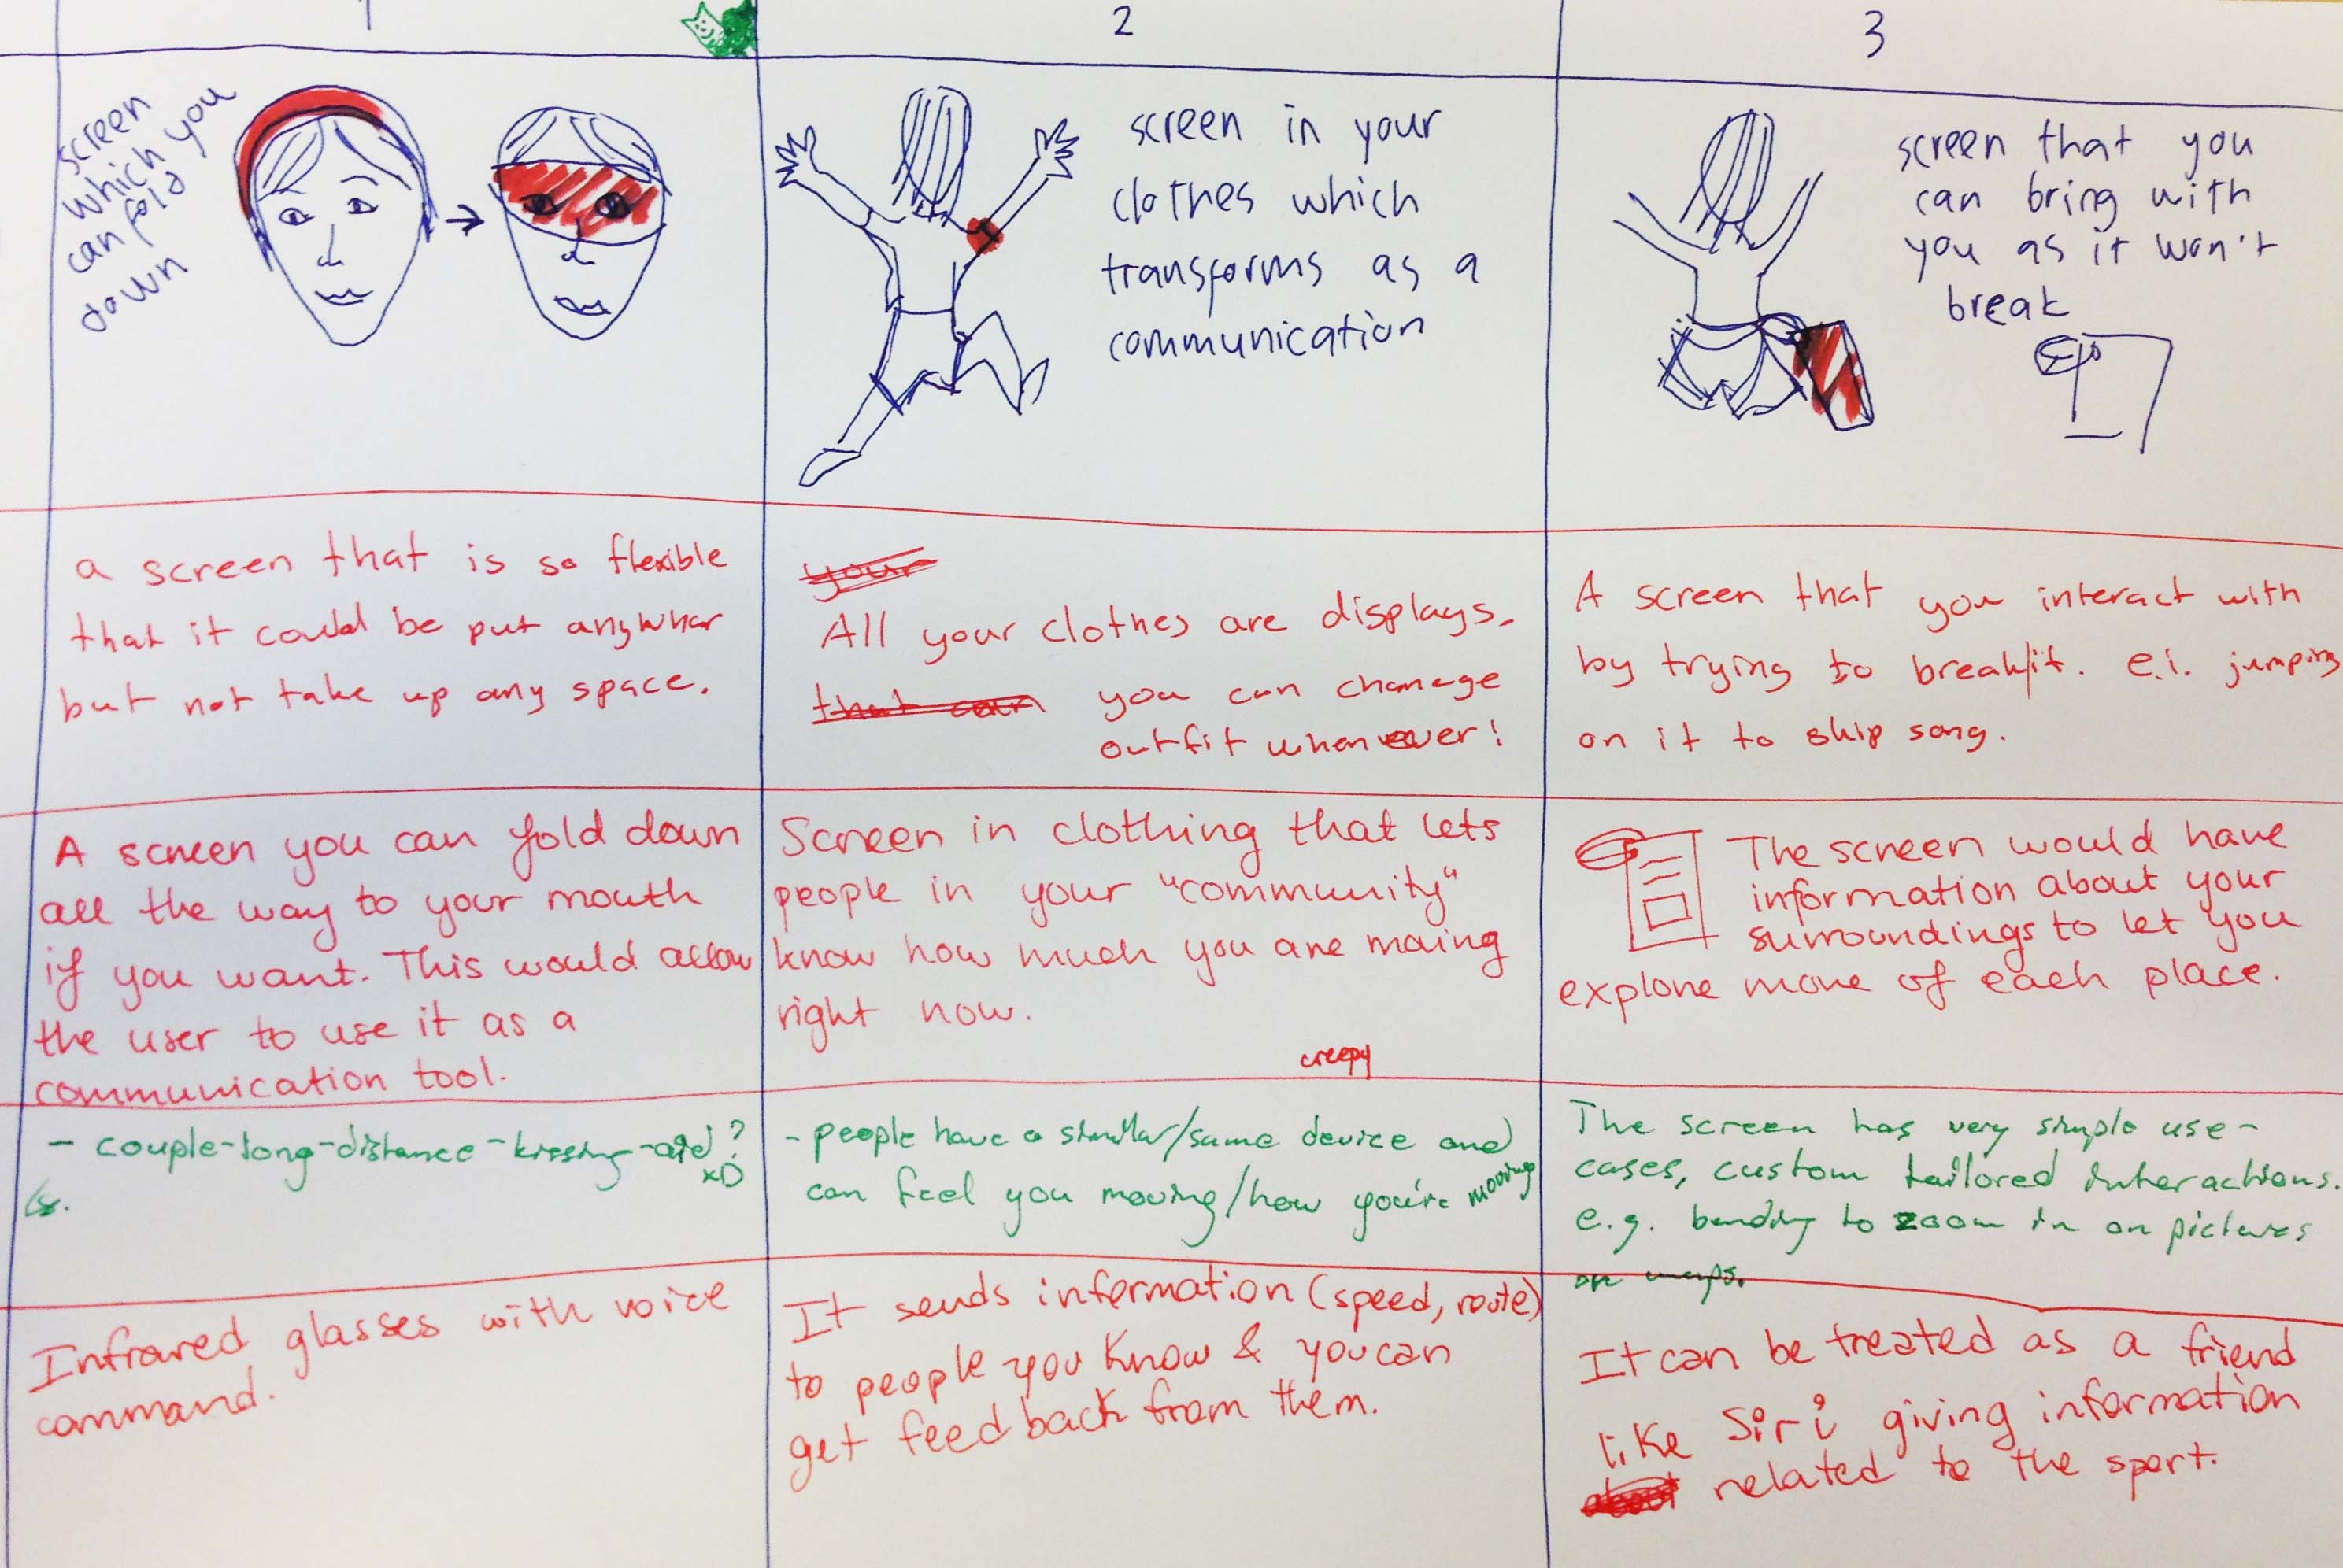 1
2
3
screen
which you
can fold
down
screen in your
clothes which
transforms as a
communication
screen that you
can bring with
you as it won't
break
a screen that is so flexible
that it could be put anywhar
but not take up any space.
your
All your clothes are displays.
that can you can chamege
outfit whenever!
A screen that you interact with
by trying to break/it. e.i. jumping
on it to skip song.
A screen you can fold down
all the way to your mouth
if you want. This would allow
the user to use it as a
communication tool.
Screen in clothing that lets
people in your "community"
know how much you are moving
right now.
creepy
The screen would have
information about your
surroundings to let you
explore more of each place.
- couple-long-distance-kissing-aid?
xD
- people have a similar/same device and
can feel you moving/how you're mooving
The screen has very simple use-
cases, custom tailored interactions.
e.g. bending to zoom in on pictures
or maps.
Infrared glasses with voice
command.
It sends information (speed, route)
to people you know & you can
get feedback from them.
It can be treated as a friend
like Siri giving information
about related to the sport.